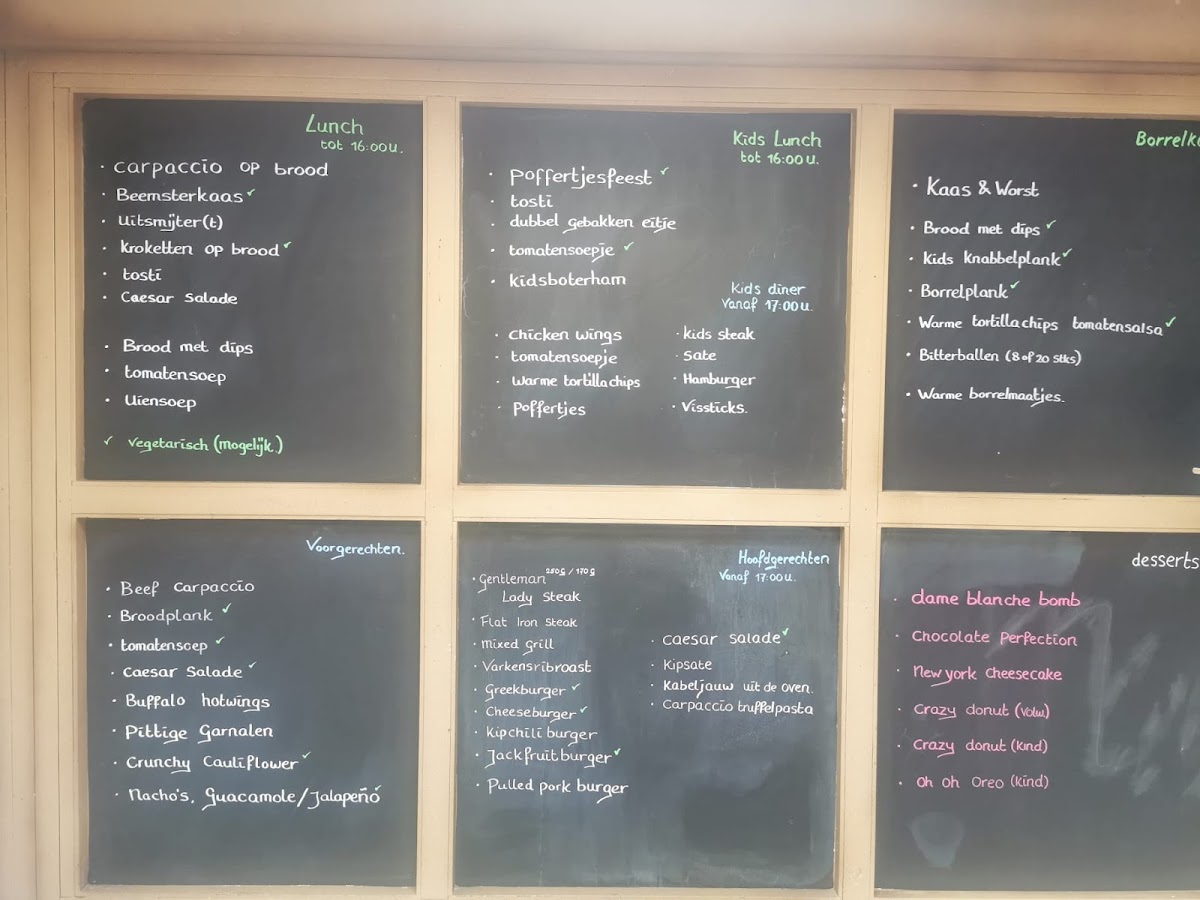 Lunch
tot 16:00u.
· carpaccio op brood
· Beemsterkaas ✓
· Uitsmijter(t)
· Kroketten op brood ✓
· tosti
· Caesar Salade
· Brood met dips
· tomatensoep
· Uiensoep
✓ Vegetarisch (mogelijk.)
Kids Lunch
tot 16:00u.
· Poffertjesfeest ✓
· tosti
· dubbel gebakken eitje
· tomatensoepje ✓
· kidsboterham
Kids diner
Vanaf 17:00u.
· Chicken wings
· tomatensoepje
· Warme tortillachips
· Poffertjes
· kids steak
· Sate
· Hamburger
· Vissticks.
· Kaas & Worst
· Brood met dips ✓
· Kids knabbelplank ✓
· Borrelplank ✓
· Warme tortillachips tomatensalsa ✓
· Bitterballen (8 of 20 stks)
· Warme borrelmaatjes.
Voorgerechten.
· Beef Carpaccio
· Broodplank ✓
· tomatensoep ✓
· Caesar Salade ✓
· Buffalo hotwings
· Pittige Garnalen
· Crunchy Cauliflower ✓
· Nacho's, Guacamole/Jalapeño ✓
Hoofdgerechten
Vanaf 17:00u.
· Gentleman 250g / 170g
Lady Steak
· Flat Iron Steak
· mixed grill
· Varkensribroast
· Greekburger ✓
· Cheeseburger ✓
· Kipchili burger
· Jackfruitburger ✓
· Pulled pork burger
· caesar salade ✓
· Kipsate
· Kabeljauw uit de oven.
· Carpaccio truffelpasta
desserts
· dame blanche bomb
· Chocolate Perfection
· New york cheesecake
· Crazy donut (Volw.)
· Crazy donut (Kind)
· Oh Oh Oreo (Kind)